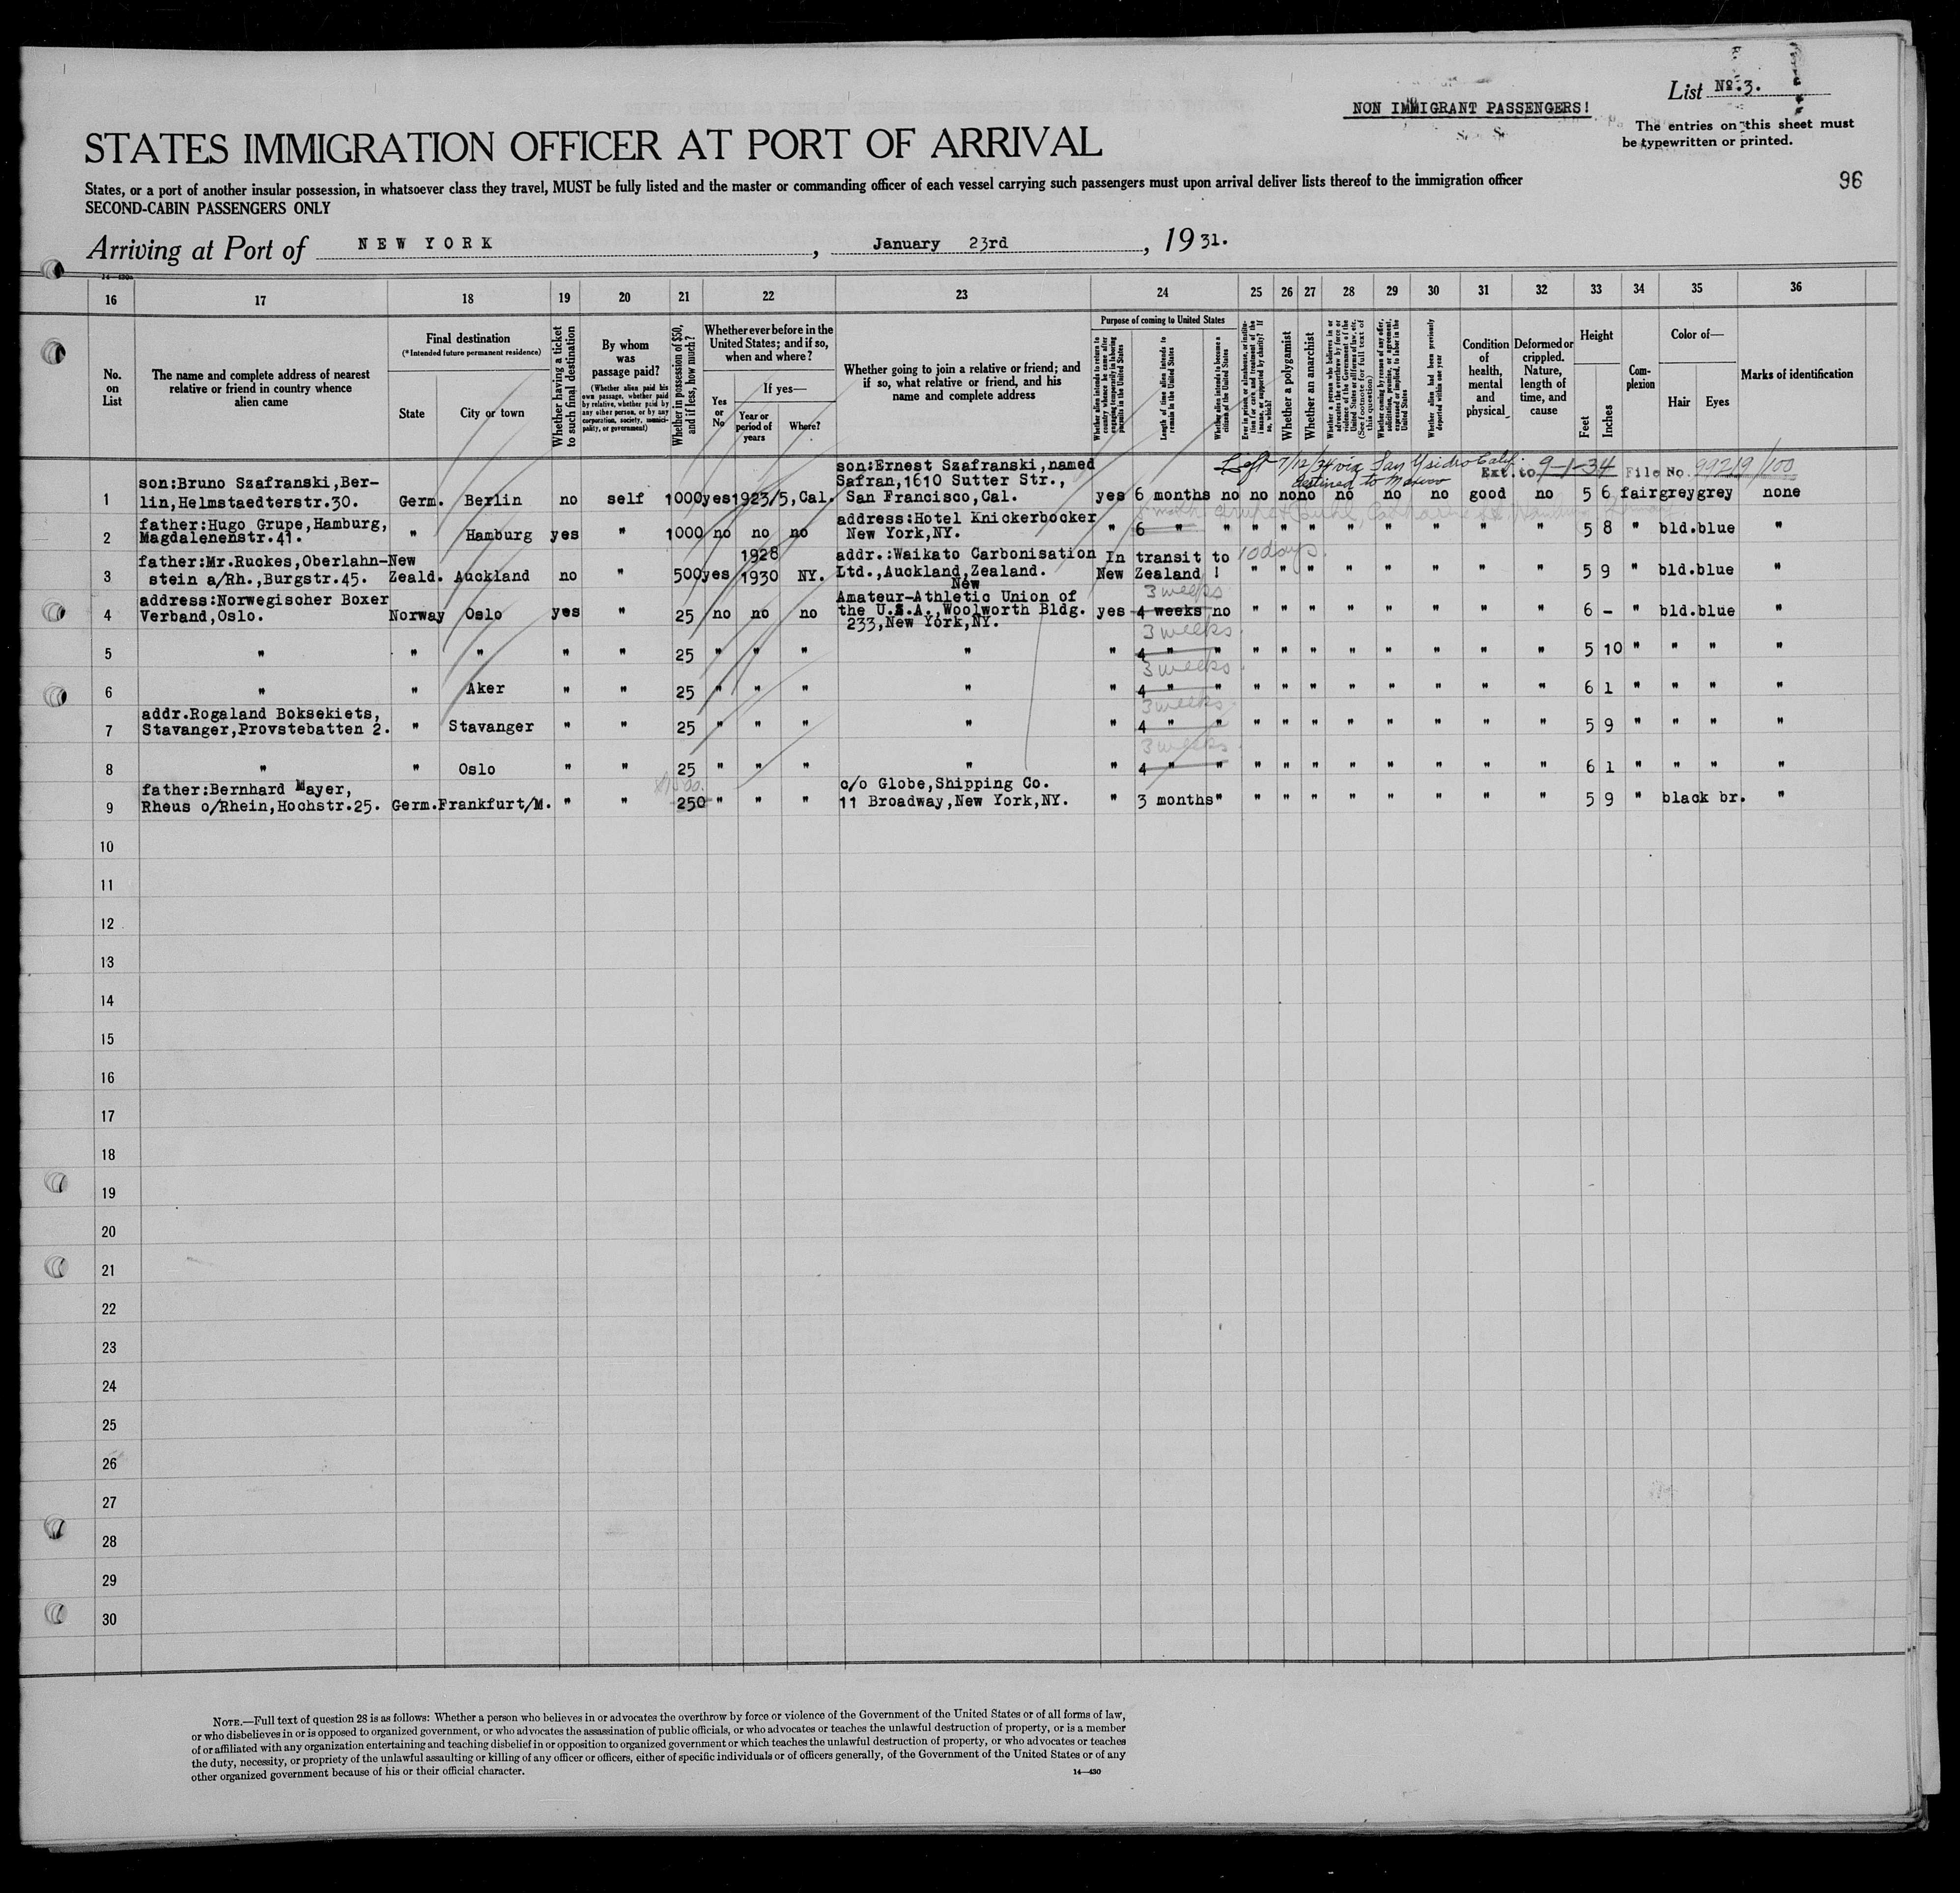 NON IMMIGRANT PASSENGERS!
List No. 3.
The entries on this sheet must
be typewritten or printed.
STATES IMMIGRATION OFFICER AT PORT OF ARRIVAL
96
States, or a port of another insular possession, in whatsoever class they travel, MUST be fully listed and the master or commanding officer of each vessel carrying such passengers must upon arrival deliver lists thereof to the immigration officer
SECOND-CABIN PASSENGERS ONLY
Arriving at Port of NEW YORK, January 23rd, 1931.
14—430a
16 17 18 19 20 21 22 23 24 25 26 27 28 29 30 31 32 33 34 35 36
No. on List
The name and complete address of nearest relative or friend in country whence alien came
Final destination
(*Intended future permanent residence)
State
City or town
Whether having a ticket to such final destination
By whom was passage paid?
(Whether alien paid his own passage, whether paid by relative, whether paid by any other person, or by any corporation, society, municipality, or government)
Whether in possession of $50, and if less, how much?
Whether ever before in the United States; and if so, when and where?
Yes or No
If yes—
Year or period of years
Where?
Whether going to join a relative or friend; and if so, what relative or friend, and his name and complete address
Purpose of coming to United States
Whether alien intends to return to country whence he came after engaging temporarily in laboring pursuits in the United States
Length of time alien intends to remain in the United States
Whether alien intends to become a citizen of the United States
Ever in prison or almshouse, or institution for care and treatment of the insane, or supported by charity? If so, which?
Whether a polygamist
Whether an anarchist
Whether a person who believes in or advocates the overthrow by force or violence of the Government of the United States or all forms of law, etc. (See footnote for full text of this question)
Whether coming by reason of any offer, solicitation, promise, or agreement, expressed or implied, to labor in the United States
Whether alien had been previously deported within one year
Condition of health, mental and physical
Deformed or crippled. Nature, length of time, and cause
Height
Feet
Inches
Complexion
Color of—
Hair
Eyes
Marks of identification
Left 7/12/34 via San Ysidro Calif.
destined to Mexico
Ext. to 9-1-34 File No. 99219/100
1 son:Bruno Szafranski,Ber-
lin,Helmstaedterstr.30. Germ. Berlin no self 1000 yes 1923/5, Cal. son:Ernest Szafranski,named
Safran,1610 Sutter Str.,
San Francisco,Cal. yes 6 months no no no no no no no good no 5 6 fair grey grey none
2 father:Hugo Grupe,Hamburg,
Magdalenenstr.41. " Hamburg yes " 1000 no no no address:Hotel Knickerbocker
New York,NY. " 6 " " " " " " " " " " 5 8 " bld. blue "
3 father:Mr.Ruckes,Oberlahn-
stein a/Rh.,Burgstr.45. New
Zeald. Auckland no " 500 yes 1928
1930 NY. addr.:Waikato Carbonisation
Ltd.,Auckland,New Zealand. In transit to
New Zealand ! 10 days " " " " " " " " 5 9 " bld. blue "
4 address:Norwegischer Boxer
Verband,Oslo. Norway Oslo yes " 25 no no no Amateur-Athletic Union of
the U.S.A.,Woolworth Bldg.
233,New York,NY. yes 4 weeks 3 weeks no " " " " " " " " 6 - " bld. blue "
5 " " " " " 25 " " " " " 4 " 3 weeks " " " " " " " " " 5 10 " " " "
6 " " Aker " " 25 " " " " " 4 3 weeks " " " " " " " " " 6 1 " " " "
7 addr.Rogaland Boksekiets,
Stavanger,Provstebatten 2. " Stavanger " " 25 " " " " " 4 " 3 weeks " " " " " " " " " 5 9 " " " "
8 " " Oslo " " 25 " " " " " 4 " 3 weeks " " " " " " " " " 6 1 " " " "
9 father:Bernhard Mayer,
Rheus o/Rhein,Hochstr.25. Germ. Frankfurt/M. " " 250 " " " c/o Globe,Shipping Co.
11 Broadway,New York,NY. " 3 months " " " " " " " " " 5 9 " black br. "
10
11
12
13
14
15
16
17
18
19
20
21
22
23
24
25
26
27
28
29
30
NOTE.—Full text of question 28 is as follows: Whether a person who believes in or advocates the overthrow by force or violence of the Government of the United States or of all forms of law,
or who disbelieves in or is opposed to organized government, or who advocates the assassination of public officials, or who advocates or teaches the unlawful destruction of property, or is a member
of or affiliated with any organization entertaining and teaching disbelief in or opposition to organized government or which teaches the unlawful destruction of property, or who advocates or teaches
the duty, necessity, or propriety of the unlawful assaulting or killing of any officer or officers, either of specific individuals or of officers generally, of the Government of the United States or of any
other organized government because of his or their official character.
14—430